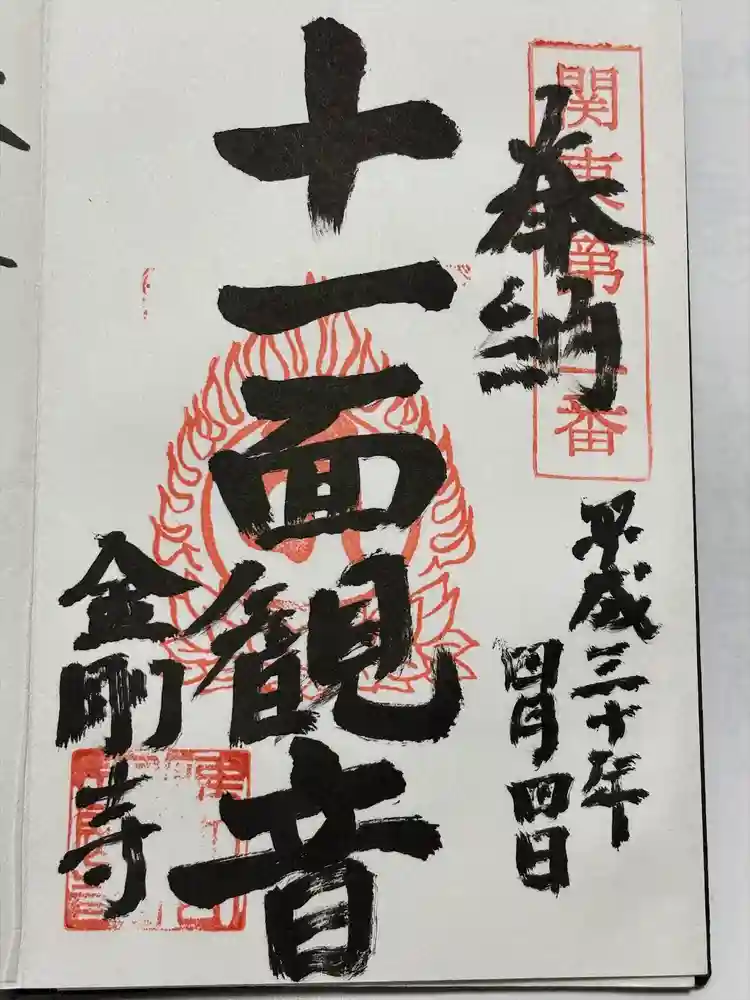 奉納
関東第一番
平成三十年
四月四日
十一面観音
金剛寺